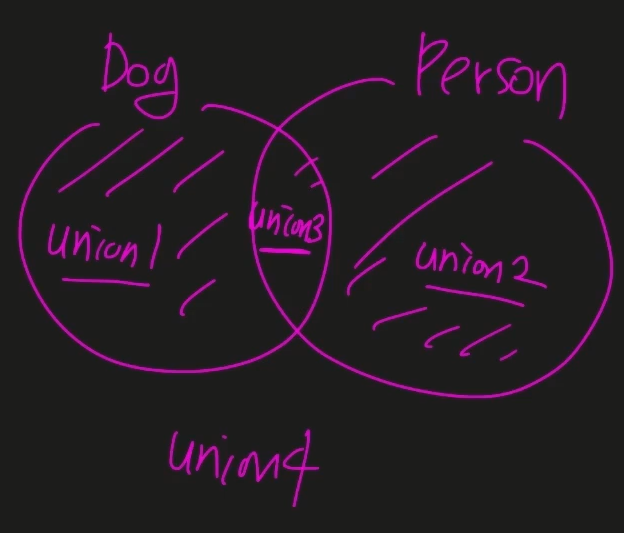 Dog
Person
union1
union3
union2
union4